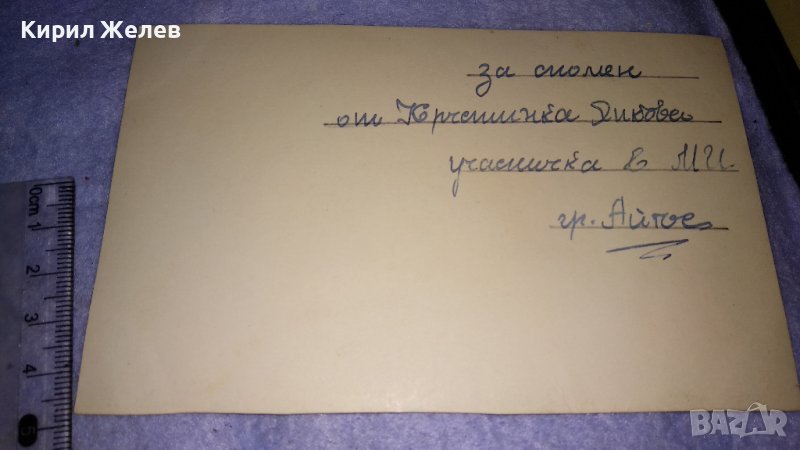 Кирил Желев
за спомен
от Дикова
учасничка в МЦ.
гр. Айтос
0cm 1 2 3 4 5
BAZAR